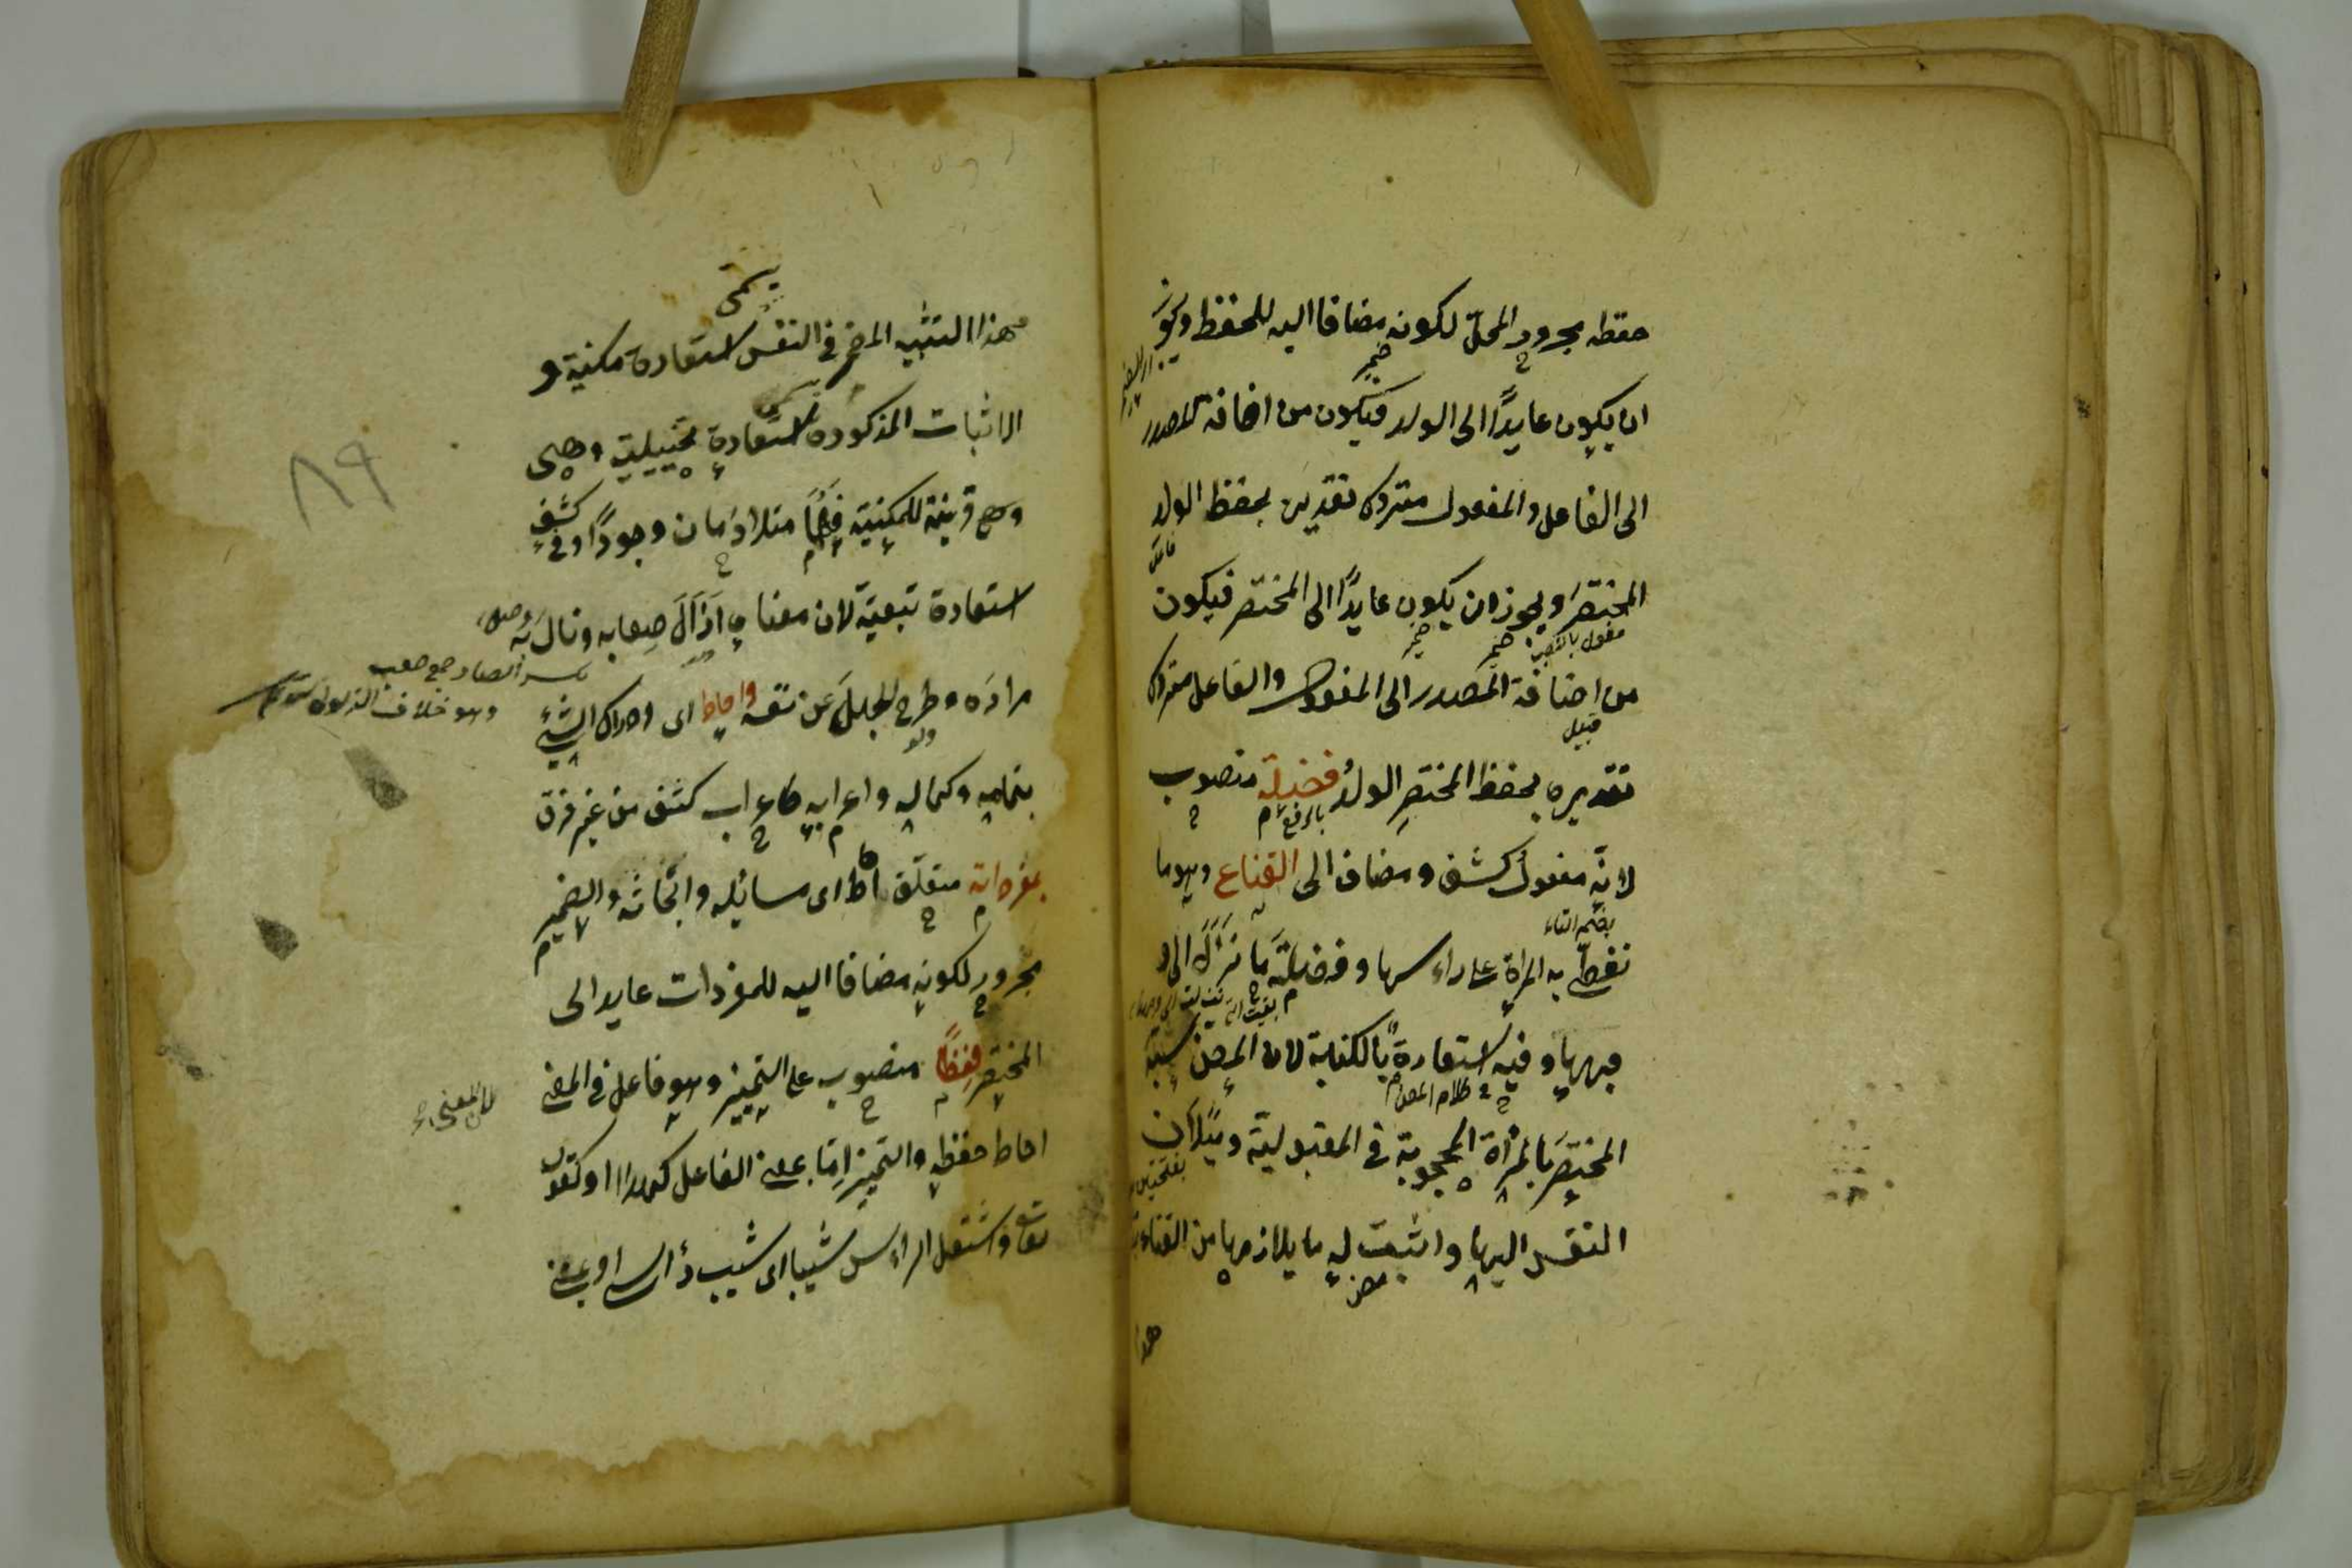 حفظه مجرور المحل لكونه مضافا اليه للحفظ ويجوز
ان يكون عايدًا الى الولد فيكون من اضافة المصدر
الى الفاعل والمفعول متروك تقديره بحفظ الولد
المختصرَ ويجوز ان يكون عايدًا الى المختصر فيكون
من اضافة المصدر الى المفعول والفاعل متروك
تقديره بحفظ المختصرِ الولدُ فضيلة منصوب
لانه مفعول كشف ومضاف الى القناع وهو ما
تغطّى به المراة على راءسها وفضلته ما نزل الى
وفيه استعارة بالكناية لان المص شبّه
المختصرَ بالمرأة المحجوبة في المقبولية وميلان
النفس اليها واثبت له ما يلازمها من القناع
هذا
يسمّى
هذا التشبيه المضمر في النفس استعارة مكنية و
الاثبات المذكورة استعارة تخييلية وهى
وهى قرينة للمكنية فهما متلازمان وجودًا وفي كشف
استعارة تبعية لان معناه ازالَ صِعابه ونال
بكسر الصاد جمع صعب
وهو خلاف الذلول
مرادَه وطرح الجهلَ عن نفسه واحاط اى ادراك الشئ
بتمامه وكماله واعرابه كاعراب كشف من غير فرق
بمفرداته متعلّق احاط اى مسائله وابحاثه والضمير
مجرور لكونه مضافا اليه للمفردات عايد الى
المختصر حفظًا منصوب على التمييز وهو فاعل في المعنى
لان المعنى
احاط حفظه والتمييز امّا بمعنى الفاعل كهذا او كقوله
تعالى واشتعل الراءس شيبا اى شيب رأس او بمعنى
٨٩